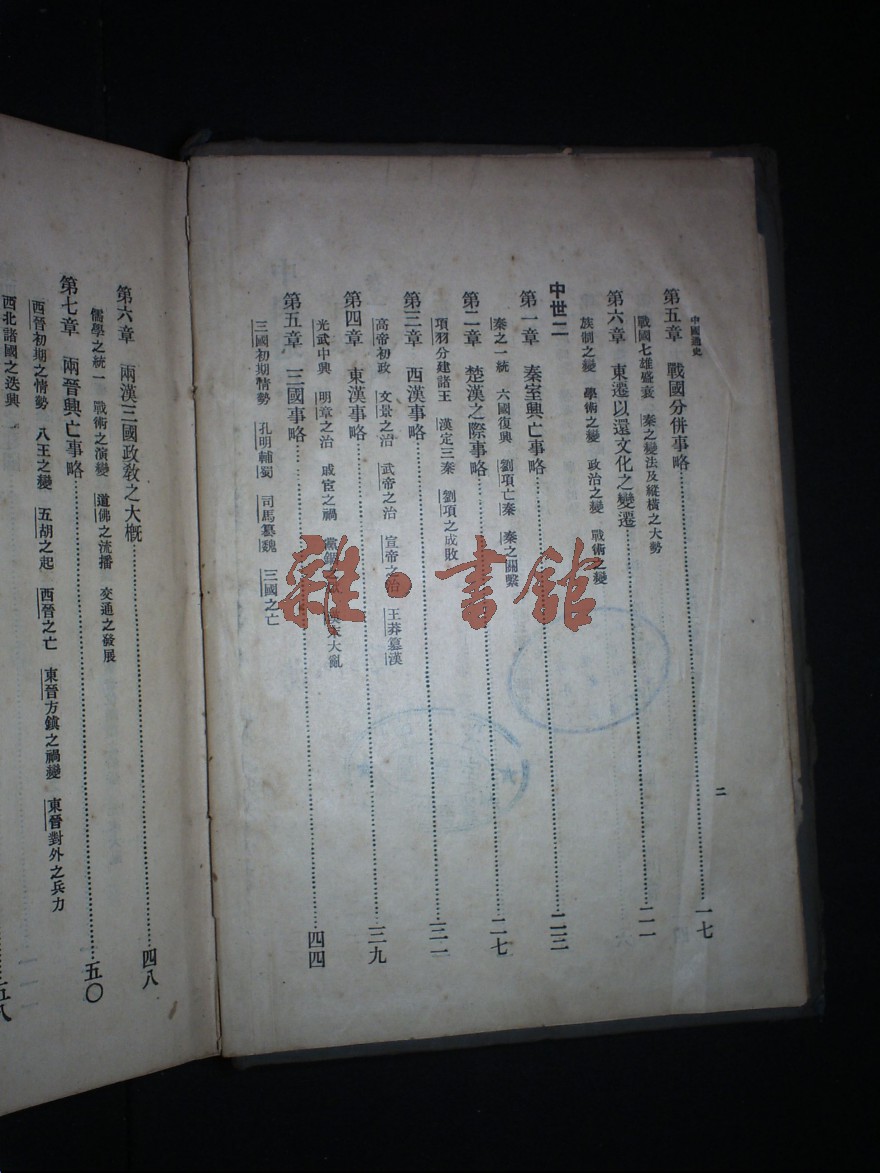 中國通史
二
第五章　戰國分併事略……一七
戰國七雄盛衰　秦之變法及縱橫之大勢
第六章　東遷以還文化之變遷……二一
族制之變　學術之變　政治之變　戰術之變
中世二
第一章　秦室興亡事略……二三
秦之一統　六國復興　劉項亡秦　秦之關繫
第二章　楚漢之際事略……二七
項羽分建諸王　漢定三秦　劉項之成敗
第三章　西漢事略……三一
高帝初政　文景之治　武帝之治　宣帝之治　王莽篡漢
第四章　東漢事略……三九
光武中興　明章之治　戚宦之禍　黨錮之　大亂
第五章　三國事略……四四
三國初期情勢　孔明輔蜀　司馬篡魏　三國之亡
第六章　兩漢三國政教之大概……四八
儒學之統一　戰術之演變　道佛之流播　交通之發展
第七章　兩晉興亡事略……五〇
西晉初期之情勢　八王之變　五胡之起　西晉之亡　東晉方鎮之禍變　東晉對外之兵力
西北諸國之迭興
雜·書館